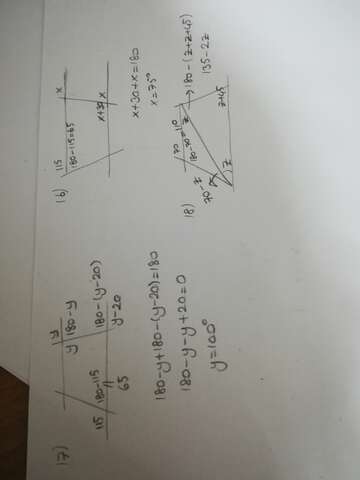 16)
115
180-115=65
x
x+30 x
x+30+x=180
x=75°
17)
y
y 180-y
115 180-115
65
180-(y-20)
y-20
180-y+180-(y-20)=180
180-y-y+20=0
y=100°
18)
70
180-70=110
z
→180-(z+z+45)
135-2z
z+45
70-z
z